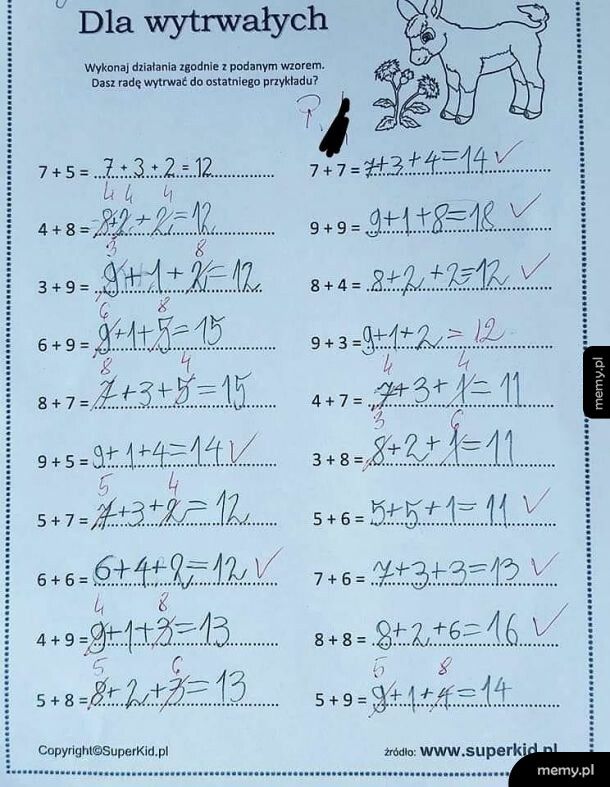 Dla wytrwałych
Wykonaj działania zgodnie z podanym wzorem.
Dasz radę wytrwać do ostatniego przykładu?
7 + 5 = 7 + 3 + 2 = 12
4 4 4
4 + 8 = 8+2+2=12
3 8
3 + 9 = 9+1+2=12
6 8
6 + 9 = 9+1+5=15
8 4
8 + 7 = 7+3+5=15
9 + 5 = 9+1+4=14 ✓
5 4
5 + 7 = 7+3+2=12
6 + 6 = 6+4+2=12 ✓
4 8
4 + 9 = 9+1+3=13
5 6
5 + 8 = 8+2+3=13
7 + 7 = 7+3+4=14 ✓
9 + 9 = 9+1+8=18 ✓
8 + 4 = 8+2+2=12 ✓
9 + 3 = 9+1+2=12
4 4
4 + 7 = 7+3+1=11
3 6
3 + 8 = 8+2+1=11
5 + 6 = 5+5+1=11 ✓
7 + 6 = 7+3+3=13 ✓
8 + 8 = 8+2+6=16 ✓
5 8
5 + 9 = 9+1+4=14
Copyright©SuperKid.pl
źródło: www.superkid.pl
memy.pl
memy.pl